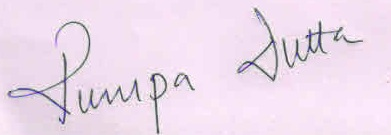 Pumpa Dutta